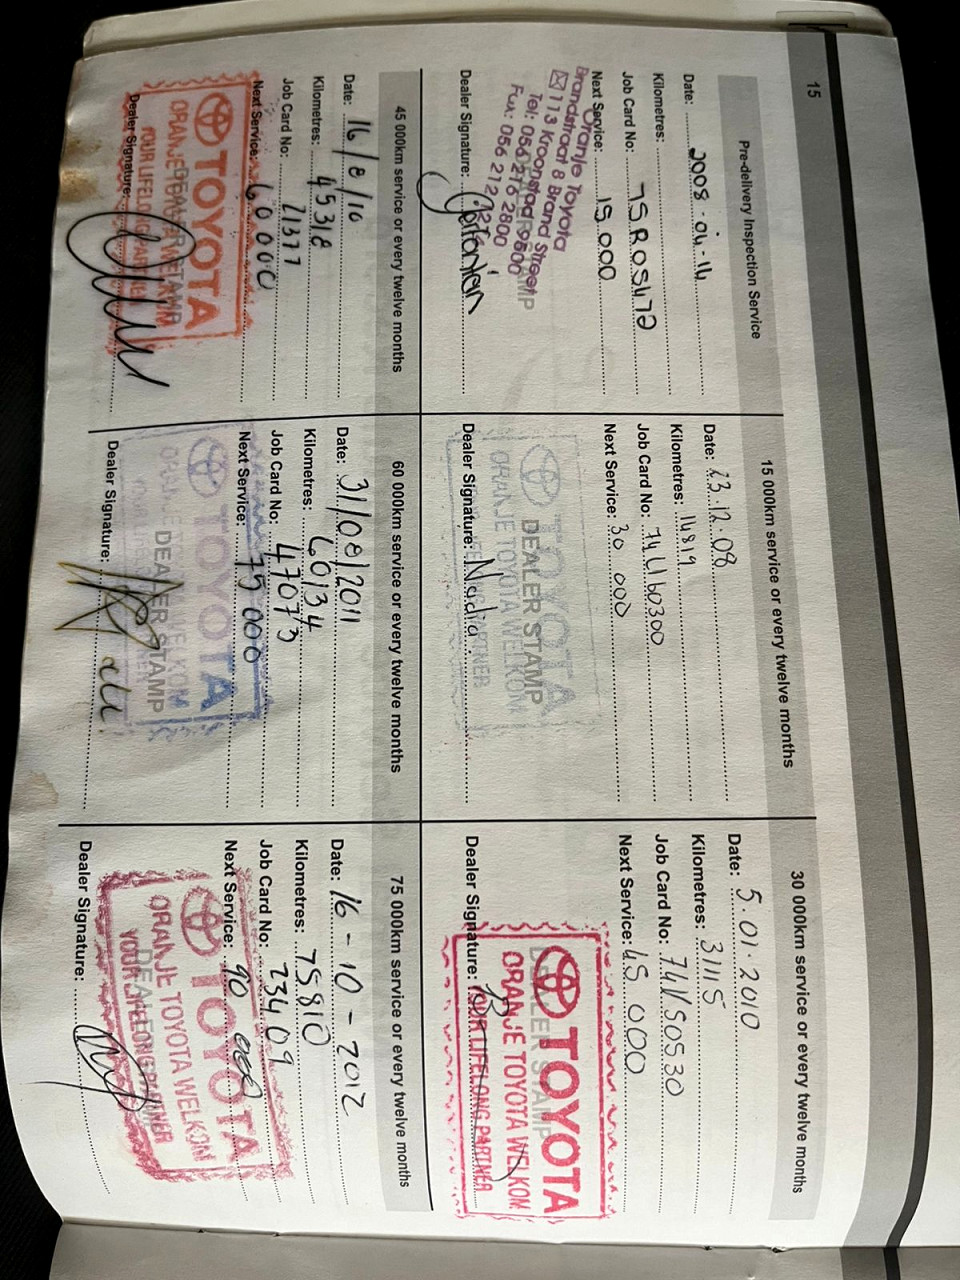 15
Pre-delivery Inspection Service
Date: 2008-04-14
Kilometres:
Job Card No: 75R05472
Next Service: 15 000
Oranje Toyota
Brandstraat 8 Brand Street
113 Kroonstad 9500
Tel: 056 216 2800
Fax: 056 212
Dealer Signature:
15 000km service or every twelve months
Date: 23.12.08
Kilometres: 14819
Job Card No:
Next Service: 30 000
TOYOTA
DEALER STAMP
ORANJE TOYOTA WELKOM
Dealer Signature: Nadia
30 000km service or every twelve months
Date: 5.01.2010
Kilometres: 31115
Job Card No: 74VS0530
Next Service: 45 000
TOYOTA
DEALER STAMP
ORANJE TOYOTA WELKOM
YOUR LIFELONG PARTNER
Dealer Signature:
45 000km service or every twelve months
Date: 16/8/10
Kilometres: 45318
Job Card No: 21377
Next Service: 60 000
TOYOTA
DEALER STAMP
ORANJE TOYOTA WELKOM
YOUR LIFELONG PARTNER
Dealer Signature:
60 000km service or every twelve months
Date: 31/08/2011
Kilometres: 60134
Job Card No: 47073
Next Service: 75 000
TOYOTA
DEALER STAMP
ORANJE TOYOTA WELKOM
Dealer Signature:
75 000km service or every twelve months
Date: 16-10-2012
Kilometres: 75810
Job Card No: 23409
Next Service: 90 000
TOYOTA
ORANJE TOYOTA WELKOM
DEALER STAMP
YOUR LIFELONG PARTNER
Dealer Signature: